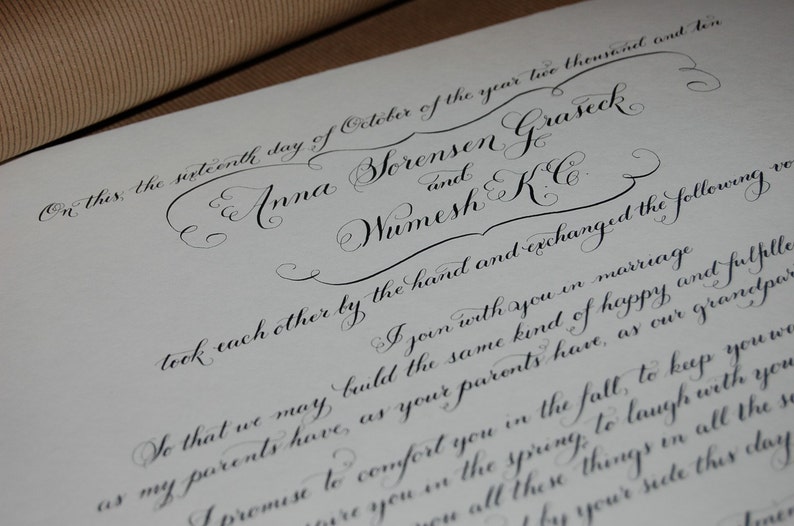 On this, the sixteenth day of October of the year two thousand and ten
Anna Sorensen Graseck
and
Wumesh K.C.
took each other by the hand and exchanged the following
I join with you in marriage
So that we may build the same kind of happy and
as my parents have, as your parents have, as our
I promise to comfort you in the fall, to keep you
you in the spring, to laugh with you
you all these things in all the
by your side this day